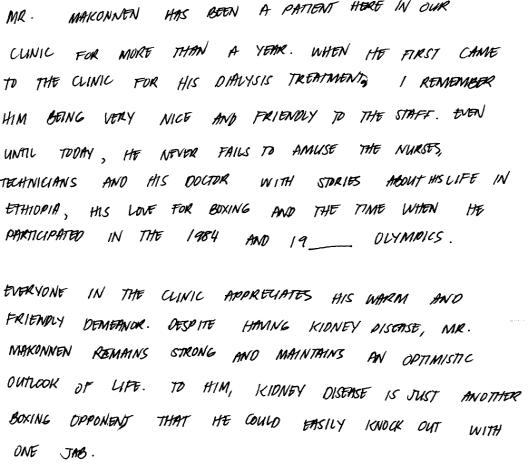 MR. MAKONNEN HAS BEEN A PATIENT HERE IN OUR
CLINIC FOR MORE THAN A YEAR. WHEN HE FIRST CAME
TO THE CLINIC FOR HIS DIALYSIS TREATMENT, I REMEMBER
HIM BEING VERY NICE AND FRIENDLY TO THE STAFF. EVEN
UNTIL TODAY, HE NEVER FAILS TO AMUSE THE NURSES,
TECHNICIANS AND HIS DOCTOR WITH STORIES ABOUT HIS LIFE IN
ETHIOPIA, HIS LOVE FOR BOXING AND THE TIME WHEN HE
PARTICIPATED IN THE 1984 AND 19____ OLYMPICS.
EVERYONE IN THE CLINIC APPRECIATES HIS WARM AND
FRIENDLY DEMEANOR. DESPITE HAVING KIDNEY DISEASE, MR.
MAKONNEN REMAINS STRONG AND MAINTAINS AN OPTIMISTIC
OUTLOOK OF LIFE. TO HIM, KIDNEY DISEASE IS JUST ANOTHER
BOXING OPPONENT THAT HE COULD EASILY KNOCK OUT WITH
ONE JAB.